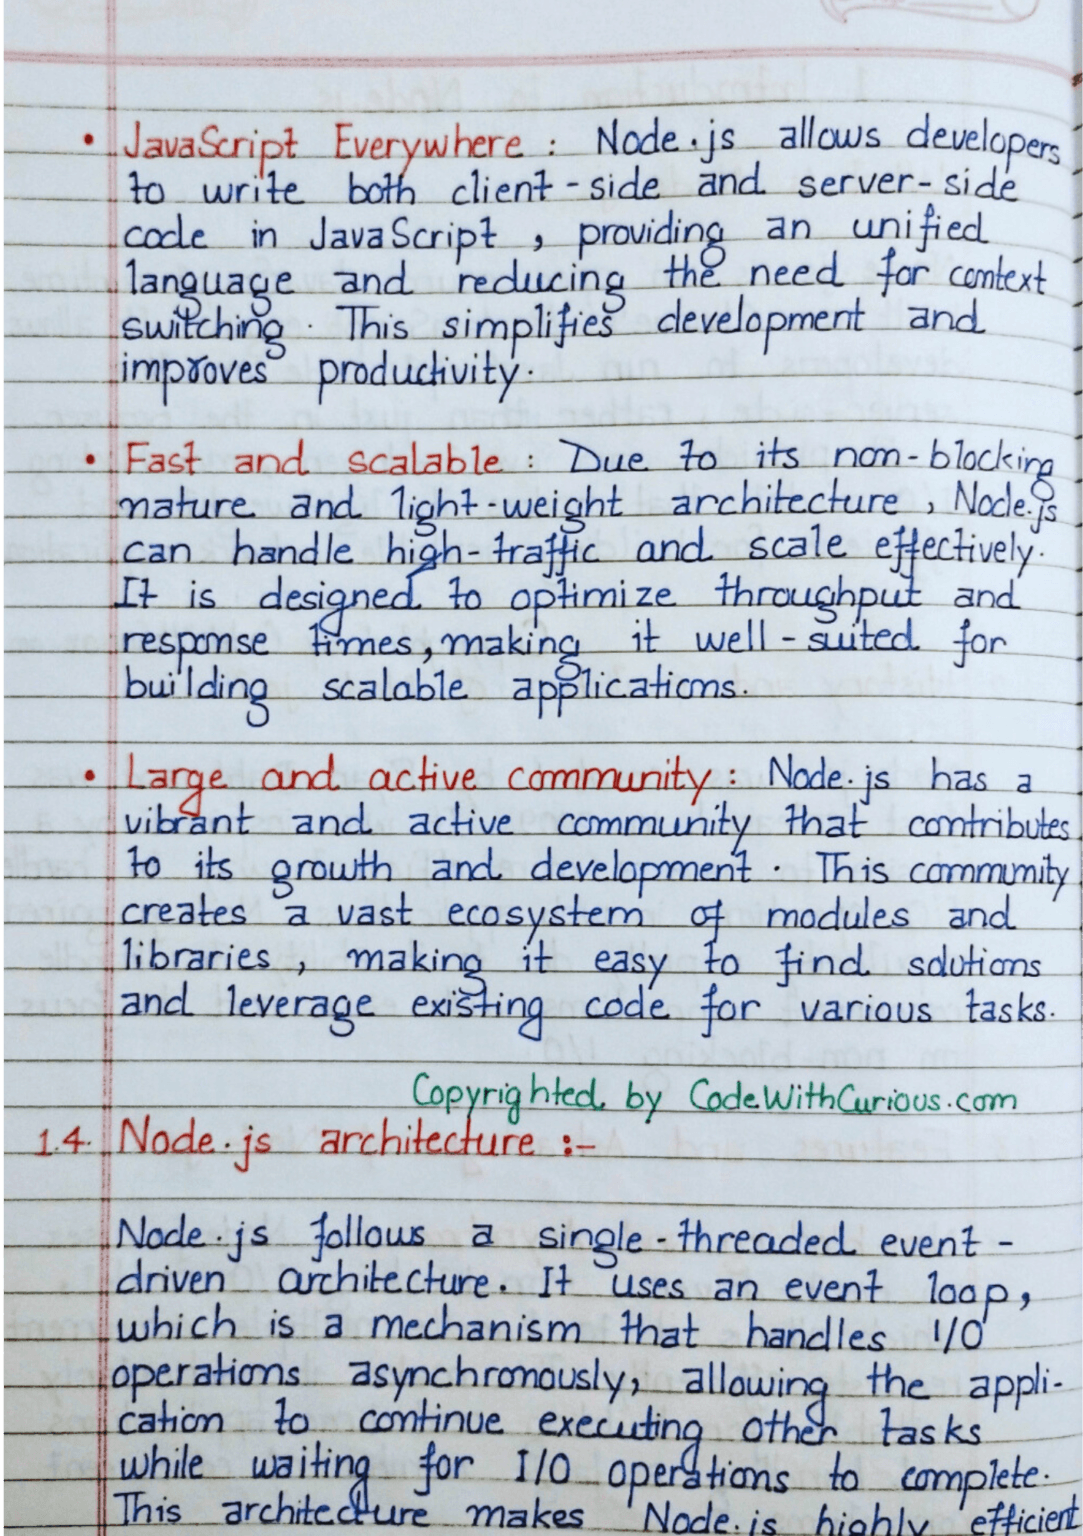 • JavaScript Everywhere : Node.js allows developers
to write both client-side and server-side
code in JavaScript , providing an unified
language and reducing the need for context
switching. This simplifies development and
improves productivity.
• Fast and scalable : Due to its non-blocking
nature and light-weight architecture, Node.js
can handle high-traffic and scale effectively.
It is designed to optimize throughput and
response times, making it well-suited for
building scalable applications.
• Large and active community : Node.js has a
vibrant and active community that contributes
to its growth and development. This community
creates a vast ecosystem of modules and
libraries, making it easy to find solutions
and leverage existing code for various tasks.
Copyrighted by CodeWithCurious.com
1.4. Node.js architecture :-
Node.js follows a single-threaded event-
driven architecture. It uses an event loop,
which is a mechanism that handles I/O
operations asynchronously, allowing the appli-
cation to continue executing other tasks
while waiting for I/O operations to complete.
This architecture makes Node.js highly efficient